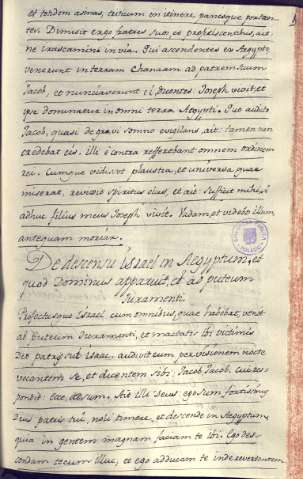 et totidem asinas, triticum in itinere panesque portan-
tes. Dimisit ergo fratres suos, et proficiscentibus, ait:
ne irascamini in via. Qui ascendentes ex Aegypto
venerunt in terram Chanaam ad patrem suum
Jacob, et nunciaverunt ei dicentes. Joseph vivit et
ipse dominatur in omni terra Aegypti. Quo audito
Jacob, quasi de gravi somno evigilans, ait: tamen non
credebat eis. Illi è contra refferebant omnem ordinem
rei. Cumque vidisset plaustra, et universa quae
miserat, revixit spiritus eius, et ait: Sufficit mihi si
adhuc filius meus Joseph vivit. Vadam, et videbo illum
antequam moriar.
De descensu israel in Aegyptum, et
quod Dominus apparuit, et ad puteum
Juramenti.
Profectusque Israel cum omnibus, quae habebat, venit
ad Puteum Juramenti, et mactatis ibi victimis
Deo patris sui Isaac, audivit eum per visionem nocte
vocantem se, et dicentem sibi, Jacob, Jacob, cui res-
pondit: ecce, adsum. Ait illi Deus: ego sum fortissimus
Deus patris tui, noli timere, et descende in Aegyptum,
quia in gentem magnam faciam te ibi. Ego des-
cendam tecum illuc, et ego adducam te inde revertentem